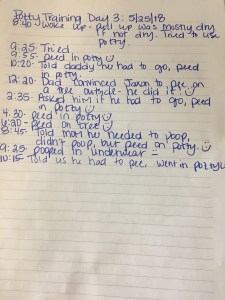 Potty Training Day 3: 5/25/18
8:40 woke up - pull up was mostly dry
if not dry. Tried to use
potty.
9:25- Tried
9:55- peed in potty ☺
10:20- Told daddy he had to go, peed
in potty.
12:20- Dad convinced Jaxon to pee on
a tree outside - he did it. ☺
2:35- Asked him if he had to go, peed
in potty ☺
4:30- peed in potty ☺
6:20- peed on tree ☺
8:45- Told mom he needed to poop,
didn't poop, but peed on potty. ☺
9:25- pooped in underwear
10:15- Told us he had to pee. went in potty